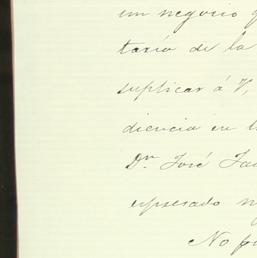 un negocio
taría de la
suplicar á V,
diencia en
Dn José
espresado
No